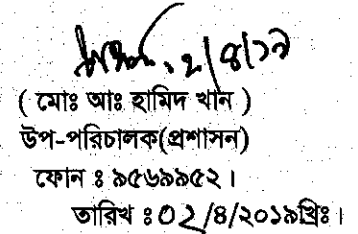 ২/৪/১৯
( মোঃ আঃ হামিদ খান )
উপ-পরিচালক(প্রশাসন)
ফোন ঃ ৯৫৬৯৯৫২।
তারিখ ঃ 02/৪/২০১৯খ্রিঃ।